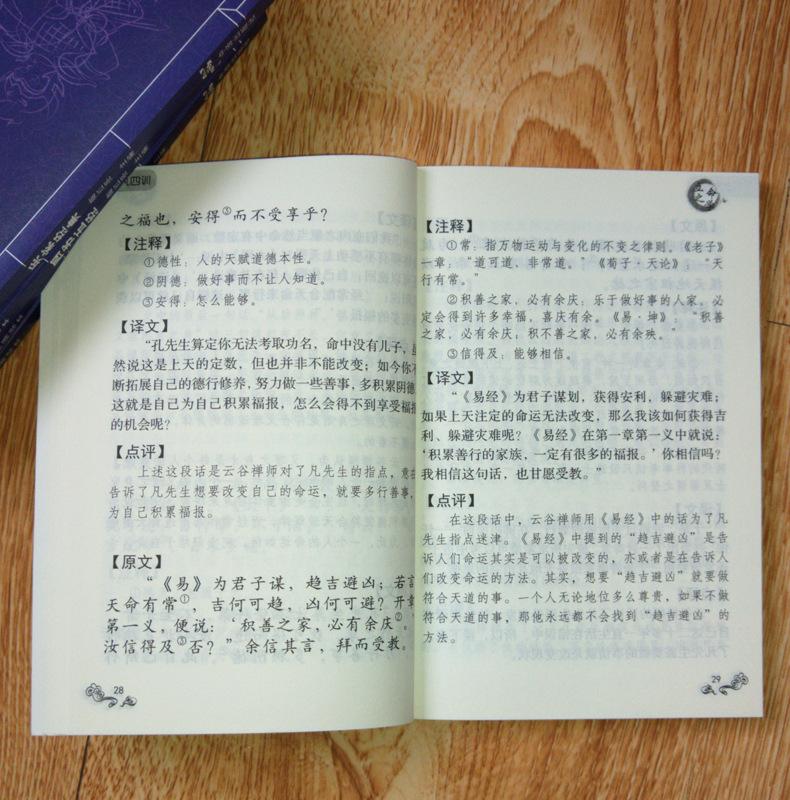 四训
之福也，安得③而不受享乎？
【注释】
①德性：人的天赋道德本性。
②阴德：做好事而不让人知道。
③安得：怎么能够。
【译文】
“孔先生算定你无法考取功名，命中没有儿子，虽
然说这是上天的定数，但也并非不能改变；如今你不
断拓展自己的德行修养，努力做一些善事，多积累阴德，
这就是自己为自己积累福报，怎么会得不到享受福报
的机会呢？
【点评】
上述这段话是云谷禅师对了凡先生的指点，意在
告诉了凡先生想要改变自己的命运，就要多行善事，
为自己积累福报。
【原文】
“《易》为君子谋，趋吉避凶；若言
天命有常①，吉何可趋，凶何可避？开章
第一义，便说：‘积善之家，必有余庆②。’
汝信得及③否？”余信其言，拜而受教。
28
立命之学
【注释】
①常：指万物运动与变化的不变之律则。《老子》
一章：“道可道，非常道。”《荀子·天论》：“天
行有常。”
②积善之家，必有余庆：乐于做好事的人家，必
定会得到许多幸福，喜庆有余。《易·坤》：“积善
之家，必有余庆；积不善之家，必有余殃。”
③信得及：能够相信。
【译文】
“《易经》为君子谋划，获得安利，躲避灾难；
如果上天注定的命运无法改变，那么我该如何获得吉
利、躲避灾难呢？《易经》在第一章第一义中就说：
‘积累善行的家族，一定有很多的福报。’你相信吗？
我相信这句话，也甘愿受教。”
【点评】
在这段话中，云谷禅师用《易经》中的话为了凡
先生指点迷津。《易经》中提到的“趋吉避凶”是告
诉人们命运其实是可以被改变的，亦或者是在告诉人
们改变命运的方法。其实，想要“趋吉避凶”就要做
符合天道的事。一个人无论地位多么尊贵，如果不做
符合天道的事，那他永远都不会找到“趋吉避凶”的
方法。
29